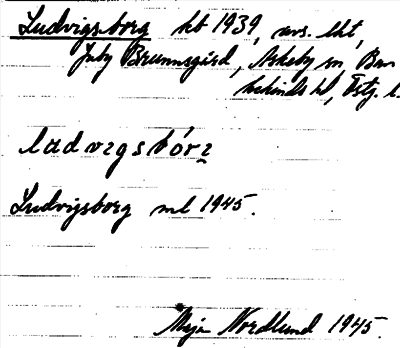 Ludvigsborg hb 1939, avs. lht,
Juby Brunnsgård, Askeby sn Ban
kekinds hd, Östg. l.
ludvegsbórɿ
Ludvigsborg ml 1945.
Maja Nordlund 1945.